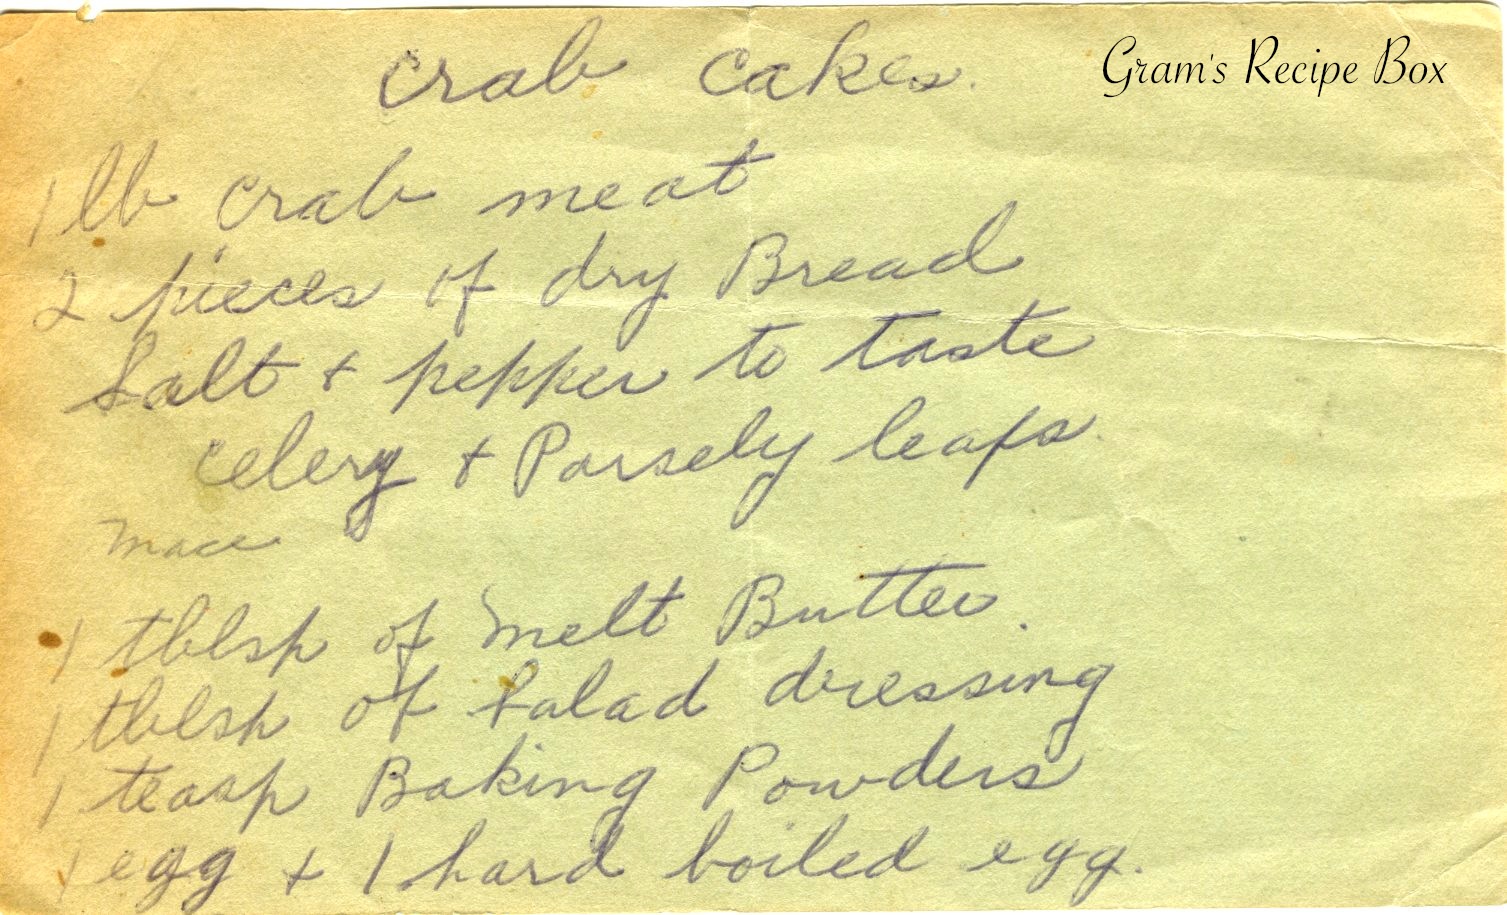 Gram's Recipe Box
Crab Cakes.
1 lb Crab meat
2 pieces of dry Bread
Salt + pepper to taste
celery + Parsely leafs.
mace
1 tblsp of melt Butter.
1 tblsp of Salad dressing
1 teasp Baking Powders
1 egg + 1 hard boiled egg.